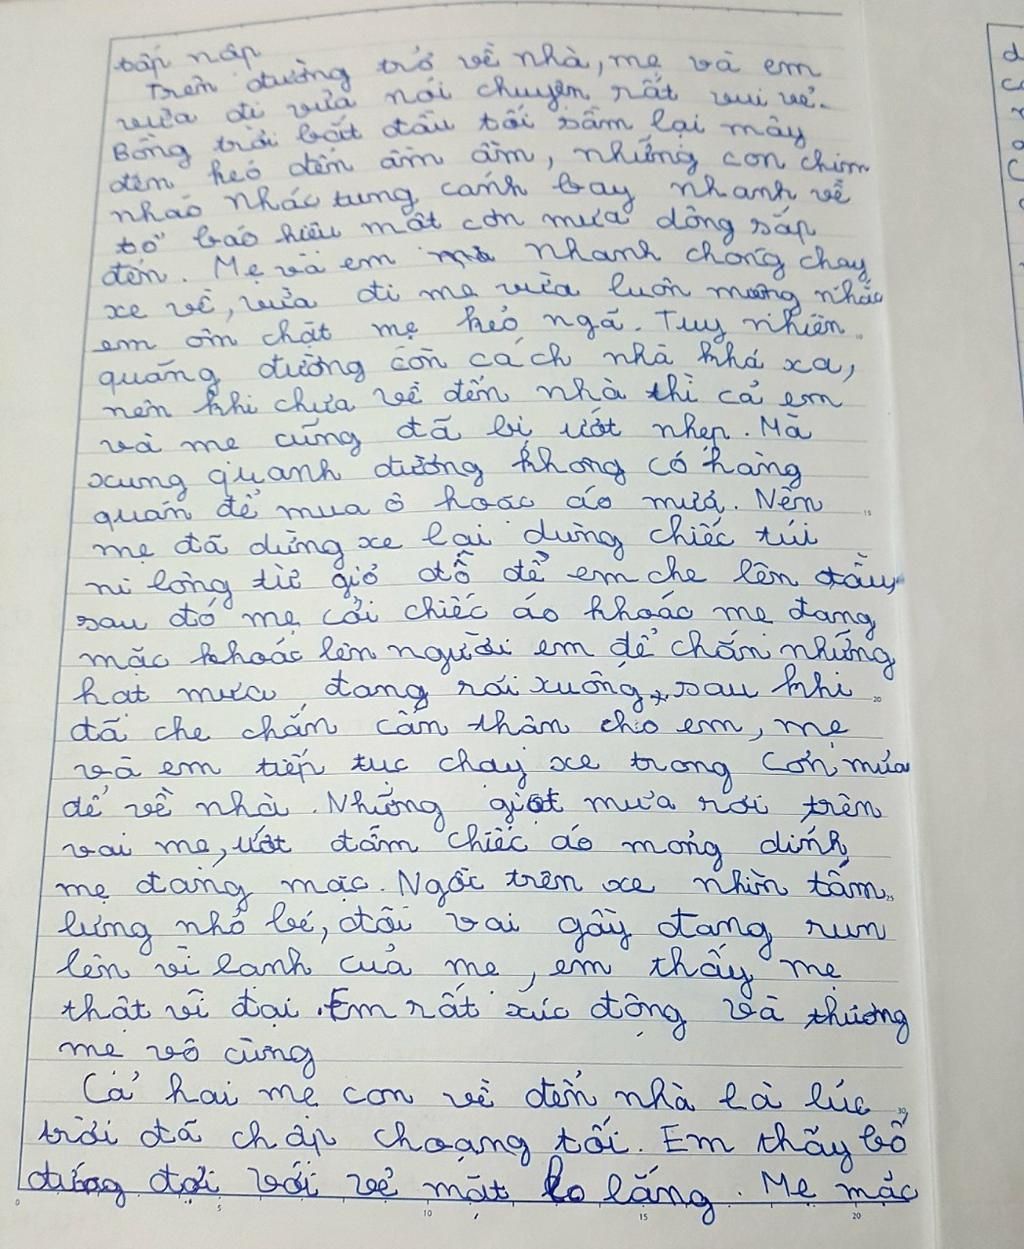 tấp nập
Trên đường trở về nhà, mẹ và em
vừa đi vừa nói chuyện rất vui vẻ.
Bỗng trời bắt đầu tối sầm lại mây
đen kéo đến ầm ầm, những con chim
nháo nhác tung cánh bay nhanh về
tổ báo hiệu một cơn mưa dông sắp
đến. Mẹ và em nhanh chóng chạy
xe về, vừa đi mẹ vừa luôn mồng nhắc
em ôm chặt mẹ kẻo ngã. Tuy nhiên
quãng đường còn cách nhà khá xa,
nên khi chưa về đến nhà thì cả em
và mẹ cũng đã bị ướt nhẹp. Mà
xung quanh đường không có hàng
quán để mua ô hoặc áo mưa. Nên
mẹ đã dừng xe lại dùng chiếc túi
ni lông từ giỏ đồ để em che lên đầu
sau đó mẹ cởi chiếc áo khoác mẹ đang
mặc khoác lên người em để chắn những
hạt mưa đang rơi xuống, sau khi
đã che chắn cẩn thận cho em, mẹ
và em tiếp tục chạy xe trong cơn mưa
để về nhà. Những giọt mưa rơi trên
vai mẹ, ướt đẫm chiếc áo mỏng dính
mẹ đang mặc. Ngồi trên xe nhìn tấm
lưng nhỏ bé, đôi vai gầy đang run
lên vì lạnh của mẹ, em thấy mẹ
thật vĩ đại. Em rất xúc động và thương
mẹ vô cùng
Cả hai mẹ con về đến nhà là lúc
trời đã chập choạng tối. Em thấy bố
đứng đợi với vẻ mặt lo lắng. Mẹ mặc